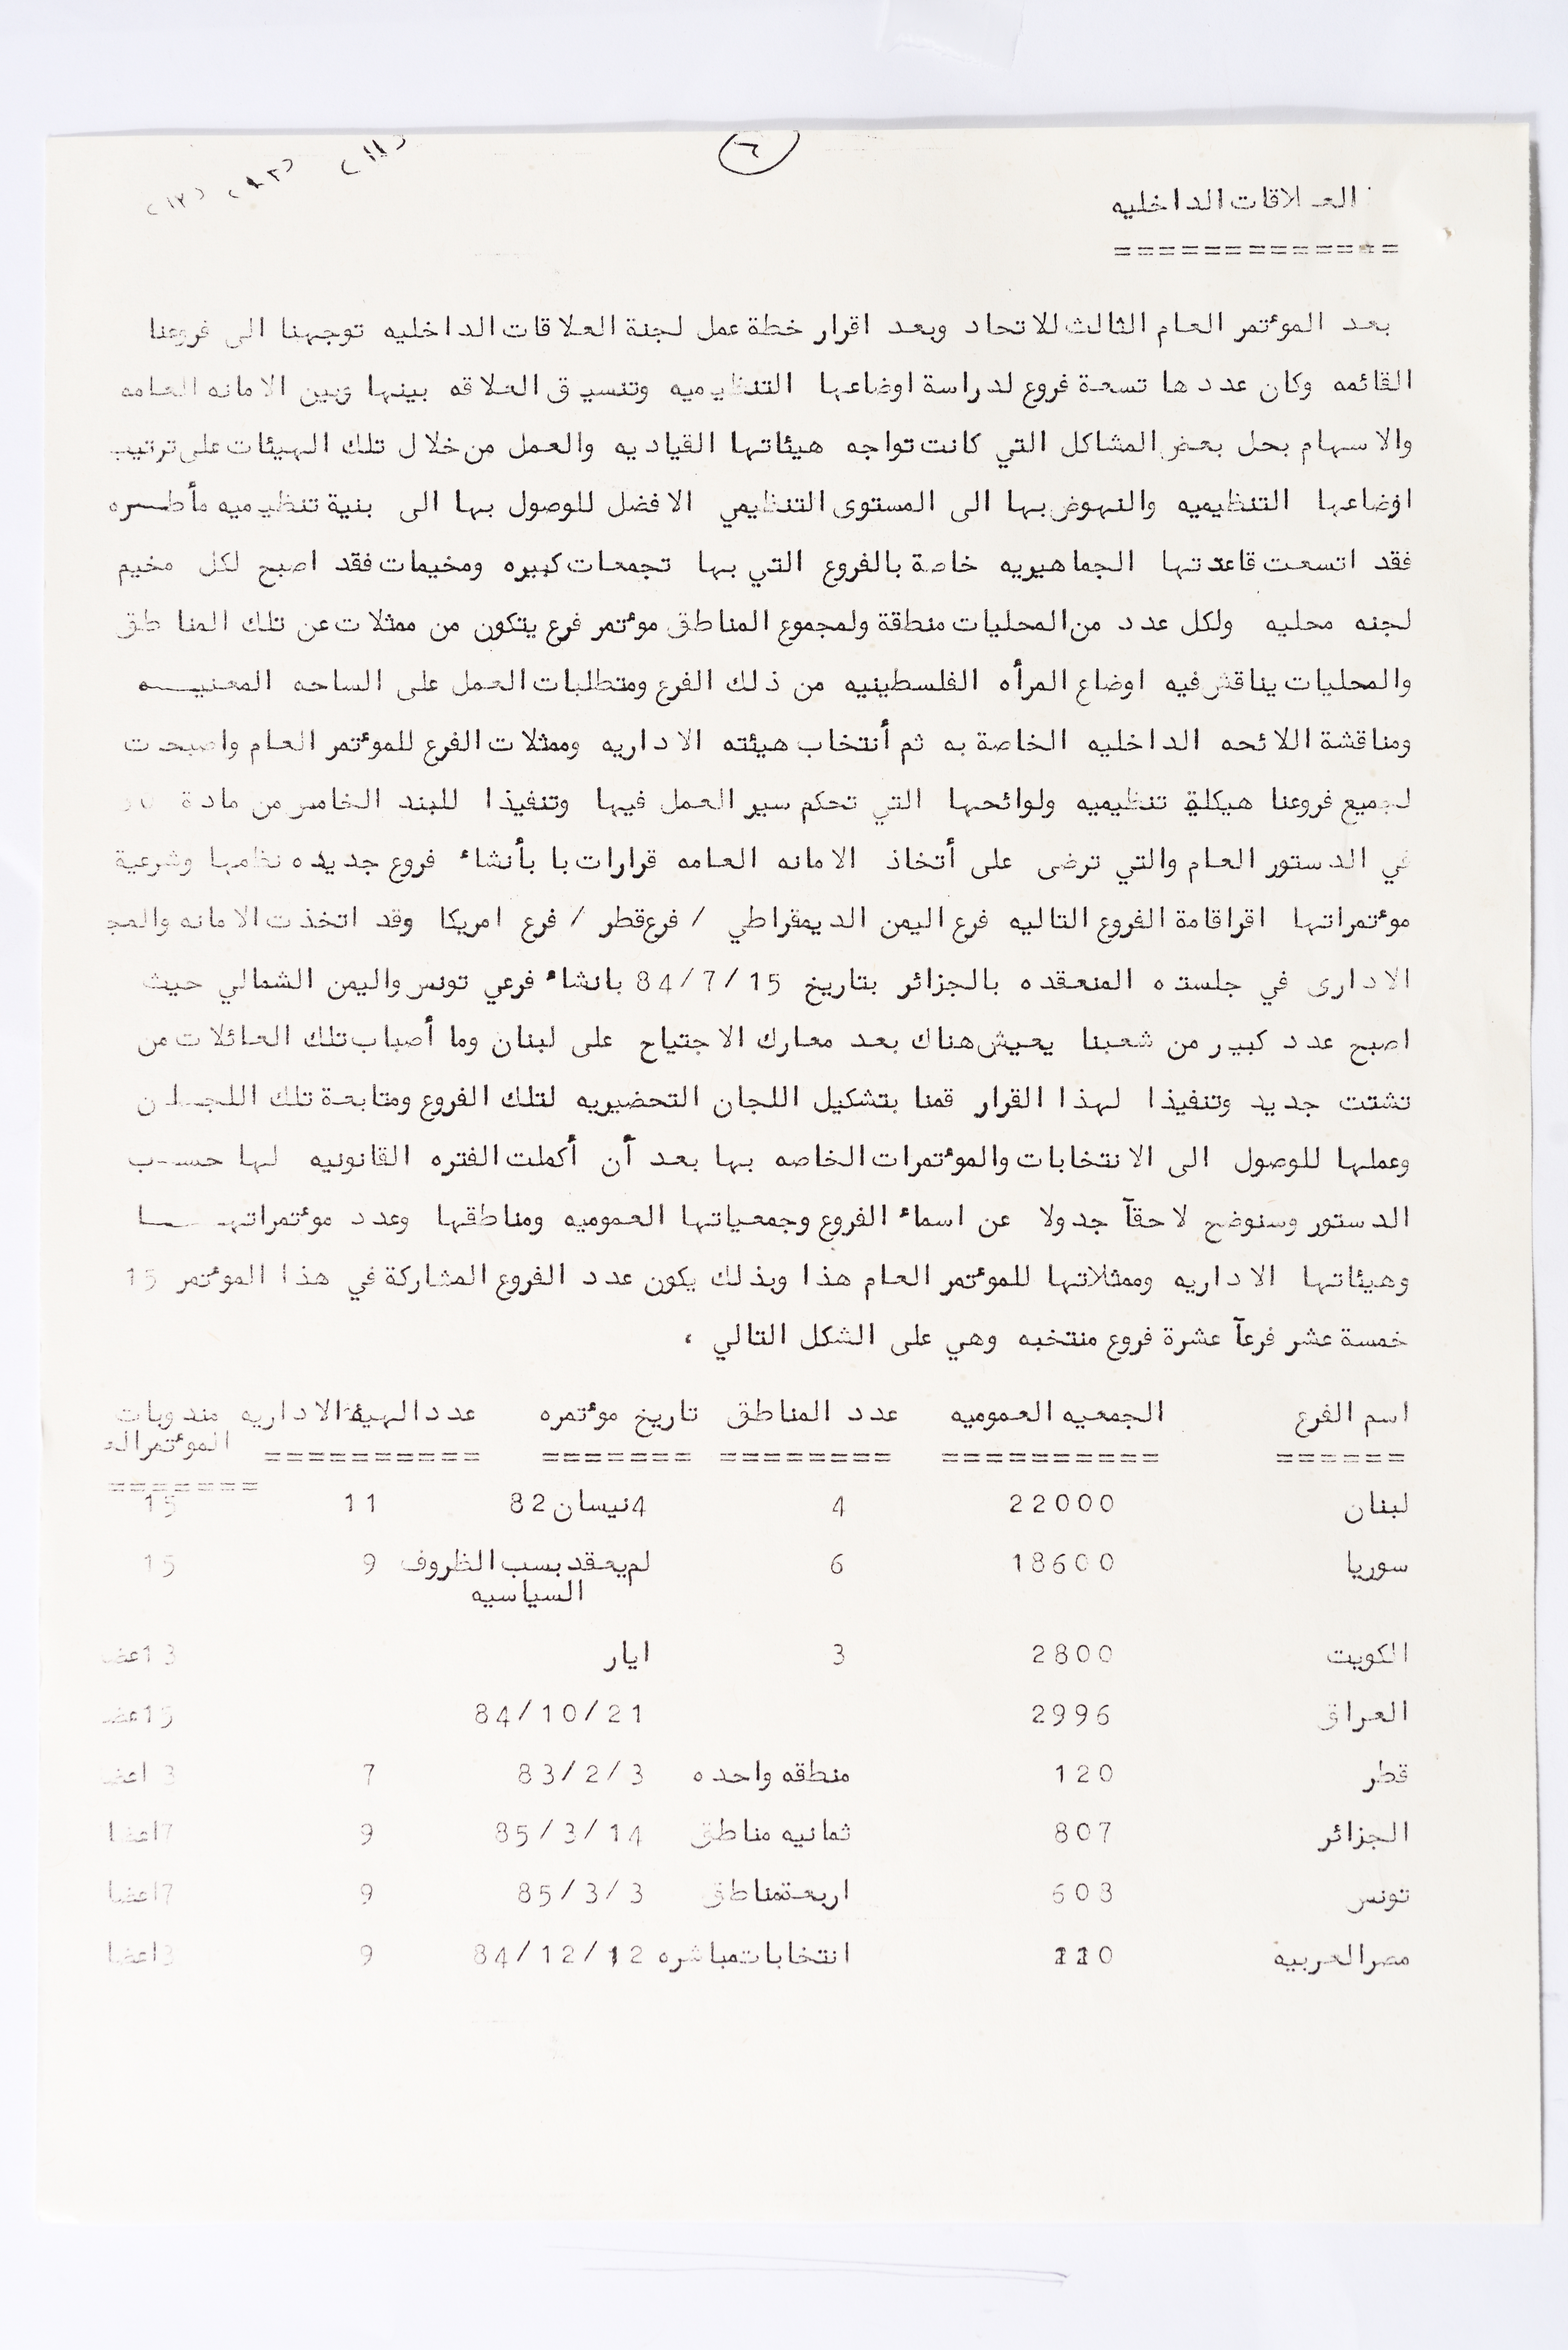 ٦
(١١) (١٢) (١٣)
العلاقات الداخليه
=============
بعد الموٴتمر العام الثالث للاتحاد وبعد اقرار خطة عمل لجنة العلاقات الداخليه توجهنا الى فروعنا
القائمه وكان عددها تسعة فروع لدراسة اوضاعها التنظيميه وتنسيق العلاقه بينها وبين الامانه العامه
والاسهام بحل بعض المشاكل التي كانت تواجه هيئاتها القياديه والعمل من خلال تلك الهيئات على ترتيب
اوضاعها التنظيميه والنهوض بها الى المستوى التنظيمي الافضل للوصول بها الى بنية تنظيميه مأطره
فقد اتسعت قاعدتها الجماهيريه خاصة بالفروع التي بها تجمعات كبيره ومخيمات فقد اصبح لكل مخيم
لجنه محليه ولكل عدد من المحليات منطقة ولمجموع المناطق موٴتمر فرع يتكون من ممثلات عن تلك المناطق
والمحليات يناقش فيه اوضاع المرأه الفلسطينيه من ذلك الفرع ومتطلبات العمل على الساحه المعنيــه
ومناقشة اللائحه الداخليه الخاصة به ثم أنتخاب هيئته الاداريه وممثلات الفرع للموٴتمر العام واصبحت
لجميع فروعنا هيكلة تنظيميه ولوائحها التي تحكم سير العمل فيها وتنفيذا للبند الخامس من مادة
في الدستور العام والتي ترضى على أتخاذ الامانه العامه قرارات با بأنشاء فروع جديده نظامها وشرعية
موٴتمراتها اقراقامة الفروع التاليه فرع اليمن الديمقراطي / فرع قطر / فرع امريكا وقد اتخذت الامانه والمج
الادارى في جلسته المنعقده بالجزائر بتاريخ 84/7/15 بانشاء فرعي تونس واليمن الشمالي حيث
اصبح عدد كبير من شعبنا يعيش هناك بعد معارك الاجتياح على لبنان وما أصباب تلك العائلات من
تشتت جديد وتنفيذا لهذا القرار قمنا بتشكيل اللجان التحضيريه لتلك الفروع ومتابعة تلك اللجــان
وعملها للوصول الى الانتخابات والموٴتمرات الخاصه بها بعد أن أكملت الفتره القانونيه لها حسـب
الدستور وسنوضح لاحقآ جدولا عن اسماء الفروع وجمعياتها العموميه ومناطقها وعدد موٴتمراتهــا
وهيئاتها الاداريه وممثلاتها للموٴتمر العام هذا وبذلك يكون عدد الفروع المشاركة في هذا الموٴتمر 15
خمسة عشر فرعآ عشرة فروع منتخبه وهي على الشكل التالي ،
اسم الفرع الجمعيه العموميه عدد المناطق تاريخ موٴتمره عدد الهيئة الاداريه مندوبات
الموٴتمر الع
====== ========== ======== ======= ========== =======
لبنان 22000 4 4نيسان82 11 15
سوريا 18600 6 لم يعقد بسب الظروف 9 15
السياسيه
الكويت 2800 3 ايار 13عض
العراق 2996 84/10/21 15عض
قطر 120 منطقه واحده 83/2/3 7 3 اعض
الجزائر 807 ثمانيه مناطق 85/3/14 9 7اعضا
تونس 608 اربعةمناطق 85/3/3 9 7اعضا
مصرالعربيه 110 انتخابات مباشره 84/12/12 9 3اعضا